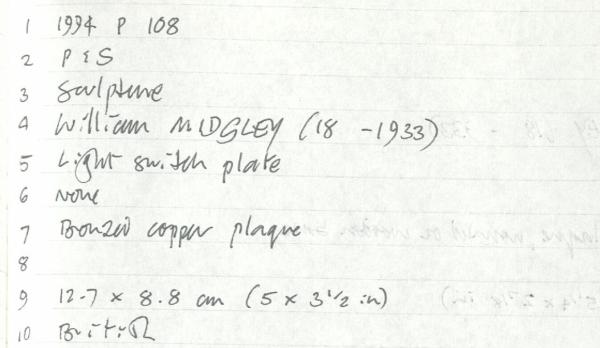 1 1994 P 108
2 P & S
3 Sculpture
4 William MIDGLEY (18 -1933)
5 Light switch plate
6 None
7 Bronzed copper plaque
8
9 12.7 x 8.8 cm (5 x 3 1/2 in)
10 British